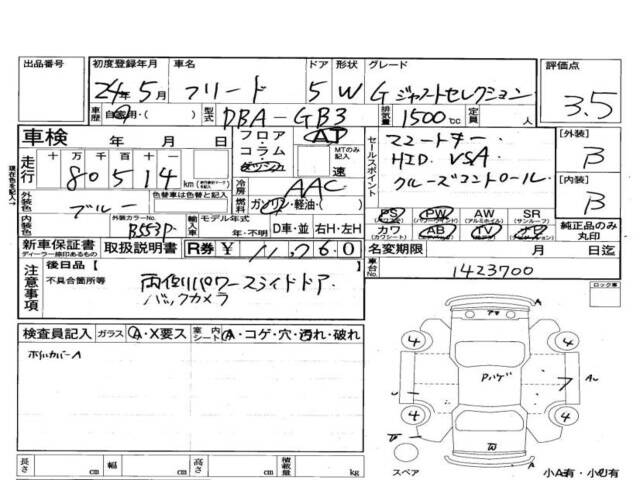 出品番号 初度登録年月 車名 ドア 形状 グレード 評価点
24年5月 フリード 5 W G ジャストセレクション 3.5
車歴 自家用・( ) 型式 DBA-GB3 排気量 1500cc 定員 人
車検 年 月 日 フロア AT
コラム・ MTのみ記入 速
走行 十万千百十一
80514 km
冷房 AAC
外装色 ブルー 色替車は色替と記入
燃料 ガソリン・軽油・( )
内装色 外装カラーNo. B553P 輸入車 モデル年式 年・不明 D車・並 右H・左H
セールスポイント スマートキー・
HID VSA
クルーズコントロール
PS PW AW SR
(パワステ) (パワーウインド) (アルミホイル) (サンルーフ)
カワ AB TV ナビ
[外装] B
[内装] B
純正品のみ丸印
新車保証書 取扱説明書 R券 ¥ 11,260
ディーラー捺印あるもの
名変期限 月 日迄
車台No. 1423700
注意事項 後日品 [ ]
不具合箇所等 両側パワースライドドア
バックカメラ
ロック車
検査員記入 ガラス A・X要ス 室内シート A・コゲ・穴・汚れ・破れ
ホイルカバーA
A
4 4
Pハゲ
4 4
W
スペア 小A有・小U有
長さ cm 幅 cm 高さ cm 積載量 kg
現在色を記入